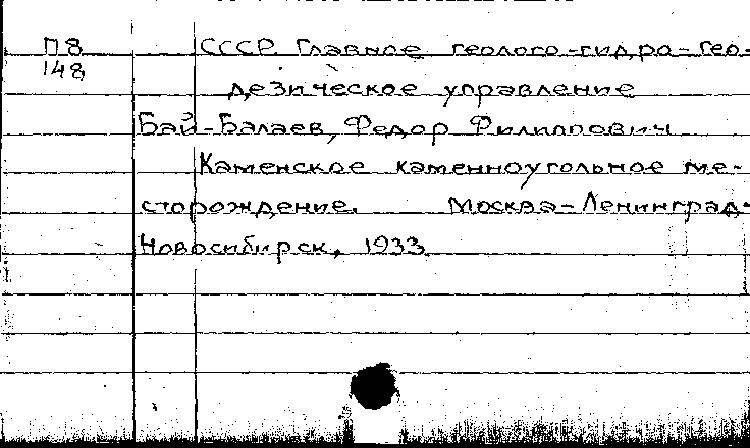 П8 СССР. Главное геолого-гидро-гео-
148
дезическое управление
Бай-Балаев, Федор Филиппович
Каменское каменноугольное ме-
сторождение. Москва-Ленинград-
Новосибирск, 1933